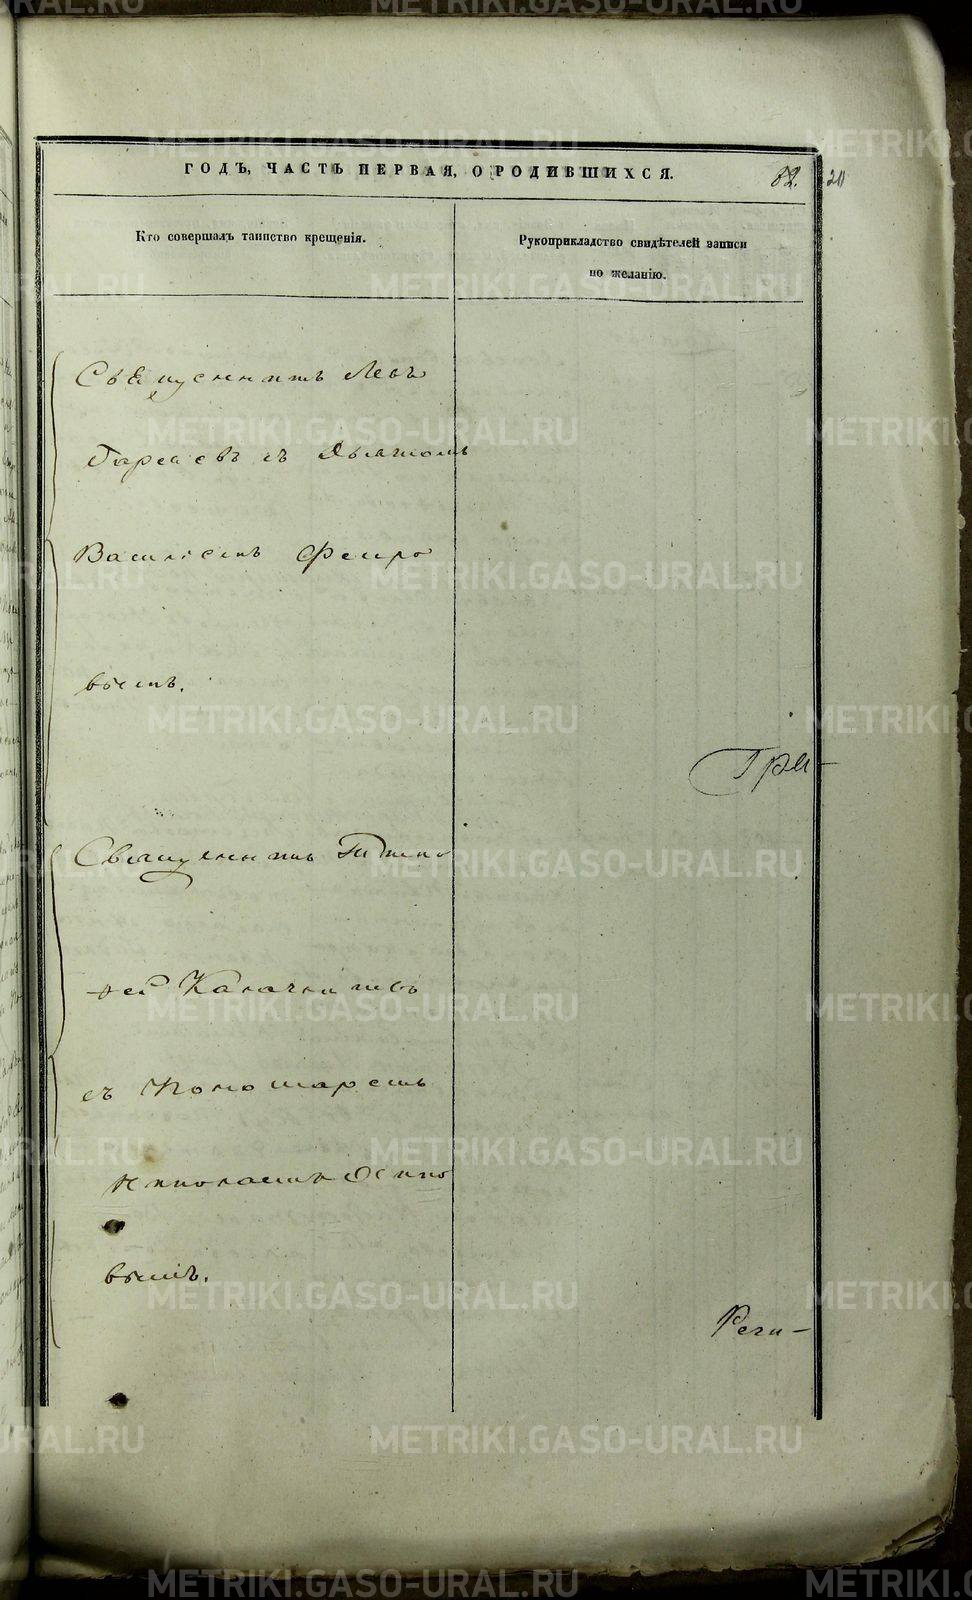 ГОДЪ, ЧАСТЬ ПЕРВАЯ, О РОДИВШИХСЯ.
62.
Кто совершалъ таинство крещенія.
Рукоприкладство свидѣтелей записи
по желанію.
Священникъ Левъ
съ Дьякономъ
Василіемъ Феиро
вымъ.
Гри-
Священникъ Тимо
ѳей Калачниковъ
съ Пономаремъ
Николаемъ Осипо
вымъ.
Реги-
METRIKI.GASO-URAL.RU